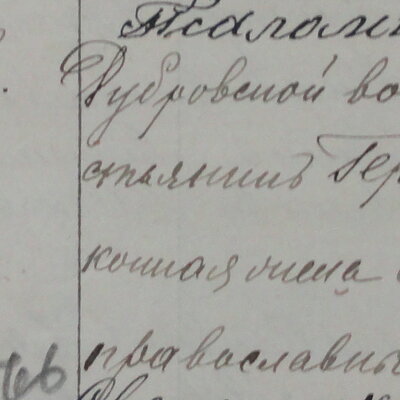 Псалом
Дубровской во
стьянинъ Гер
конная жена
православны
66